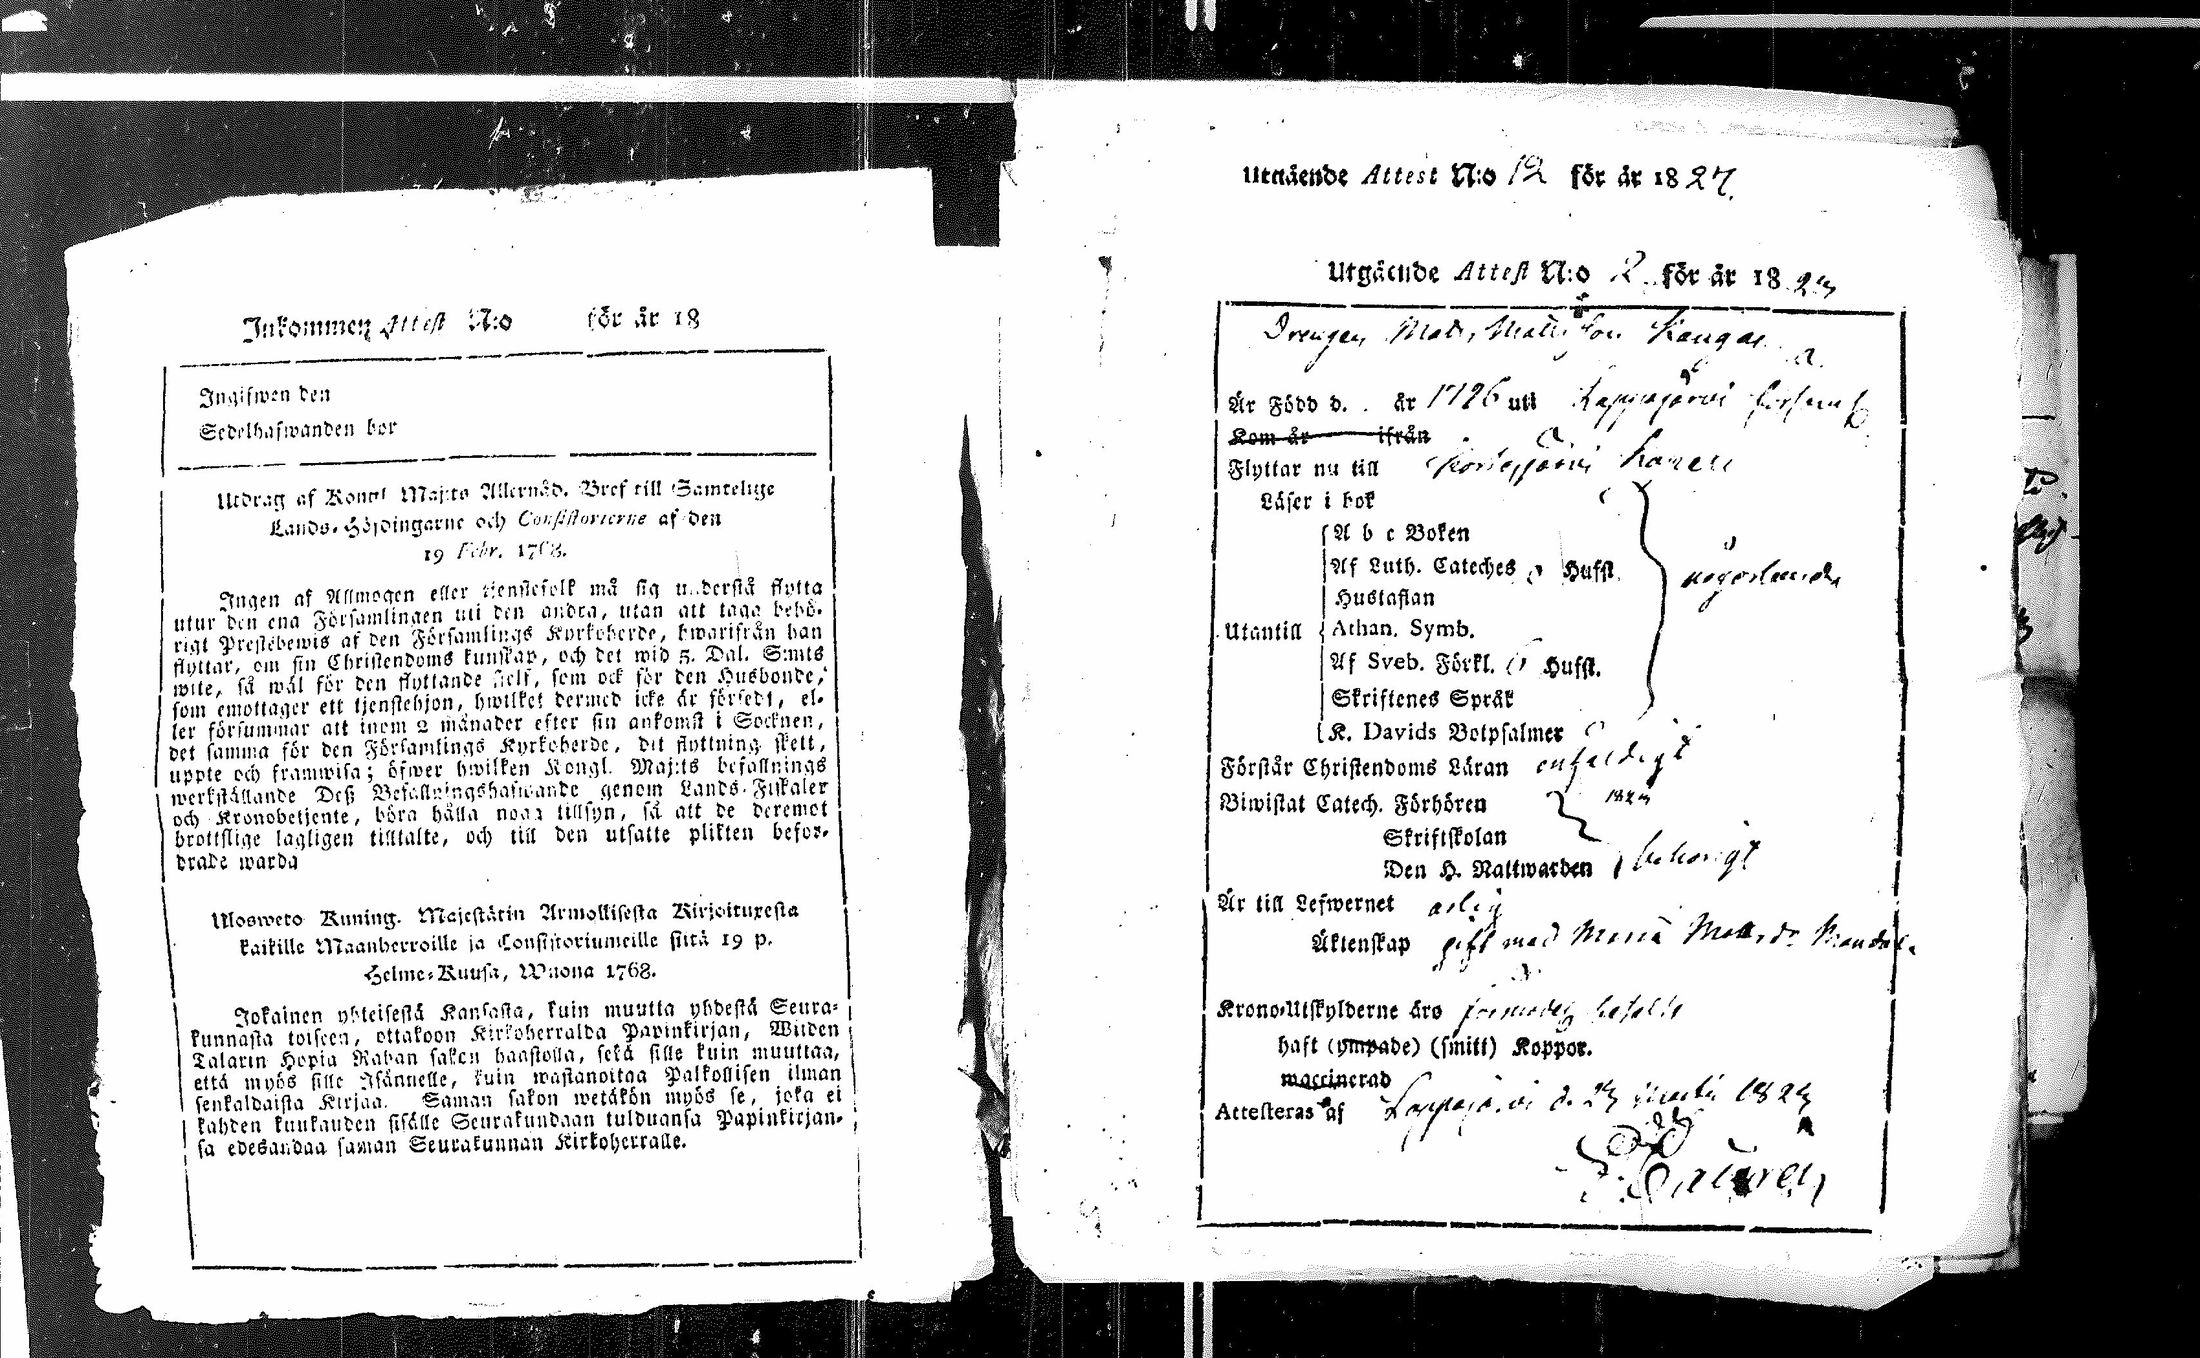 Inkommen Attest N:o för år 18
Ingifwen den
Sedelhafwanden bor
Utdrag af Kongl Maj:ts Allernåd. Bref till Samtelige
Lands-Höfdingarne och Consistorierne af den
19 Febr. 1768.
Ingen af Allmogen eller tjenstefolk må sig understå flytta
utur den ena Församlingen uti den andra, utan att taga behö-
rigt Prestebewis af den Församlings Kyrkoherde, hwarifrån han
flyttar, om sin Christendoms kunskap, och det wid 5. Dal. S:mts
wite, så wäl för den flyttande sielf, som ock för den Husbonde,
som emottager ett tjenstehjon, hwilket dermed icke är försedt, el-
ler försummar att inom 2 månader efter sin ankomst i Socknen,
det samma för den Församlings Kyrkoherde, dit flyttning skett,
uppte och framwisa; öfwer hwilken Kongl. Maj:ts befallnings
werkställande Deß Befallningshafwande genom Lands-Fiskaler
och Kronobetjente, böra hålla noga tillsyn, så att de deremot
brottslige lagligen tilltalte, och till den utsatte plikten befor-
drade warda
Ulosweto Kuning. Majestätin Armollisesta Kirjoituxesta
kaikille Maanherroille ja Consistoriumeille siitä 19 p.
Helme-Kuusa, Wuona 1768.
Jokainen yhteisestä Kansasta, kuin muutta yhdestä Seura-
kunnasta toiseen, ottakoon Kirkoherralda Papinkirjan, Wiiden
Talarin Hopia Rahan sakon haastolla, sekä sille kuin muuttaa,
että myös sille Isännelle, kuin wastanoitaa Palkollisen ilman
senkaldaista Kirjaa. Saman sakon wetäkön myös se, joka ei
kahden kuukauden sisälle Seurakundaan tulduansa Papinkirjan-
sa edesandaa saman Seurakunnan Kirkoherralle.
Utgående Attest N:o 12 för år 1827.
Utgående Attest N:o 2 för år 1827
Drengen Matts Mattsson Kangas
Är Född d. år 1796 uti Lappajärvi församl
Kom år ifrån
Flyttar nu till Kortesjärvi
Läser i bok
A b c Boken
Af Luth. Cateches Hufst.
Hustaflan
Utantill Athan. Symb.
Af Sveb. Förkl. Hufst.
Skriftenes Språk
K. Davids Botpsalmer
någorlunda
Förstår Christendoms Läran enfaldigt
Biwistat Catech. Förhören 1827
Skriftskolan
Den H. Nattwarden behörigt
Är till Lefwernet ärlig
Äktenskap gift med Maria Mattsdr
Krono-Utskylderne äro betalte
haft (ympade) (smitt) Koppor.
waccinerad
Attesteras af Lappajärvi d. 27 Martii 1827